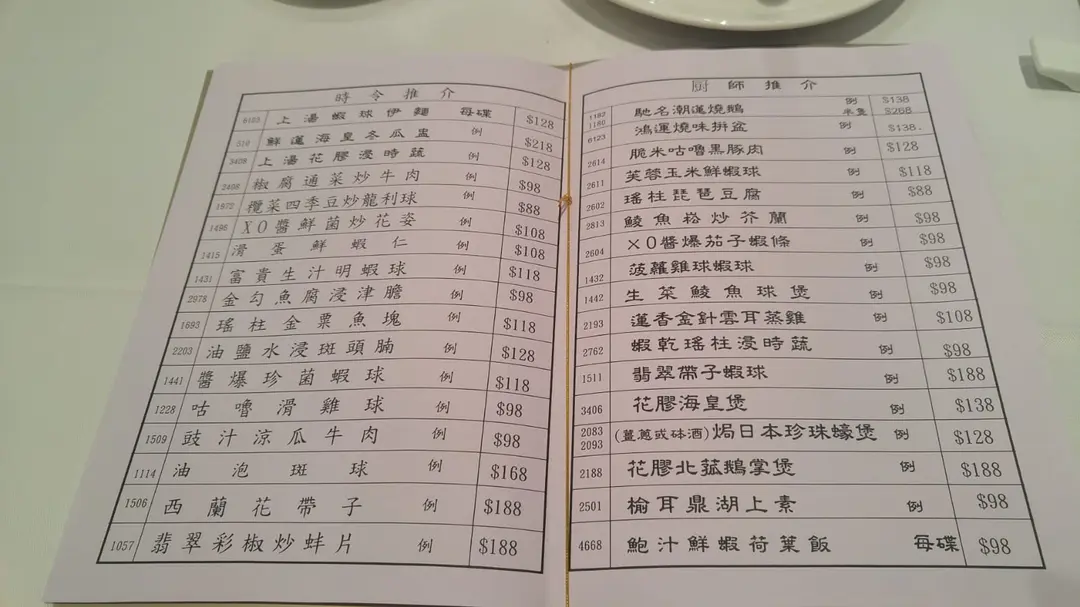 時令推介
6103 上湯蝦球伊麵 每碟 $128
510 鮮蓮海皇冬瓜盅 例 $218
3428 上湯花膠浸時蔬 例 $128
2466 椒腐通菜炒牛肉 例 $98
1972 欖菜四季豆炒龍利球 $88
1496 XO醬鮮菌炒花姿 例 $108
1415 滑蛋鮮蝦仁 例 $108
1431 富貴生汁明蝦球 例 $118
2978 金勾魚腐浸津膽 例 $98
1693 瑤柱金粟魚塊 例 $118
2203 油鹽水浸斑頭腩 例 $128
1441 醬爆珍菌蝦球 例 $118
1228 咕嚕滑雞球 例 $98
1509 豉汁涼瓜牛肉 例 $98
1114 油泡斑球 例 $168
1506 西蘭花帶子 例 $188
1057 翡翠彩椒炒蚌片 例 $188
厨師推介
1182 馳名潮蓮燒鵝 例 $138
1180 半隻 $268
6123 鴻運燒味拼盆 例 $138.
2614 脆米咕嚕黒豚肉 例 $128
2611 芙蓉玉米鮮蝦球 例 $118
2602 瑤柱琵琶豆腐 例 $88
2813 鯪魚崧炒芥蘭 例 $98
2604 XO醬爆茄子蝦條 例 $98
1432 菠蘿雞球蝦球 例 $98
1442 生菜鯪魚球煲 例 $98
2193 蓮香金針雲耳蒸雞 例 $108
2762 蝦乾瑤柱浸時蔬 例 $98
1511 翡翠帶子蝦球 例 $188
3406 花膠海皇煲 例 $138
2083
2093 (薑蔥或砵酒)焗日本珍珠蠔煲 例 $128
2188 花膠北菰鵝掌煲 例 $188
2501 榆耳鼎湖上素 例 $98
4668 鮑汁鮮蝦荷葉飯 每碟 $98